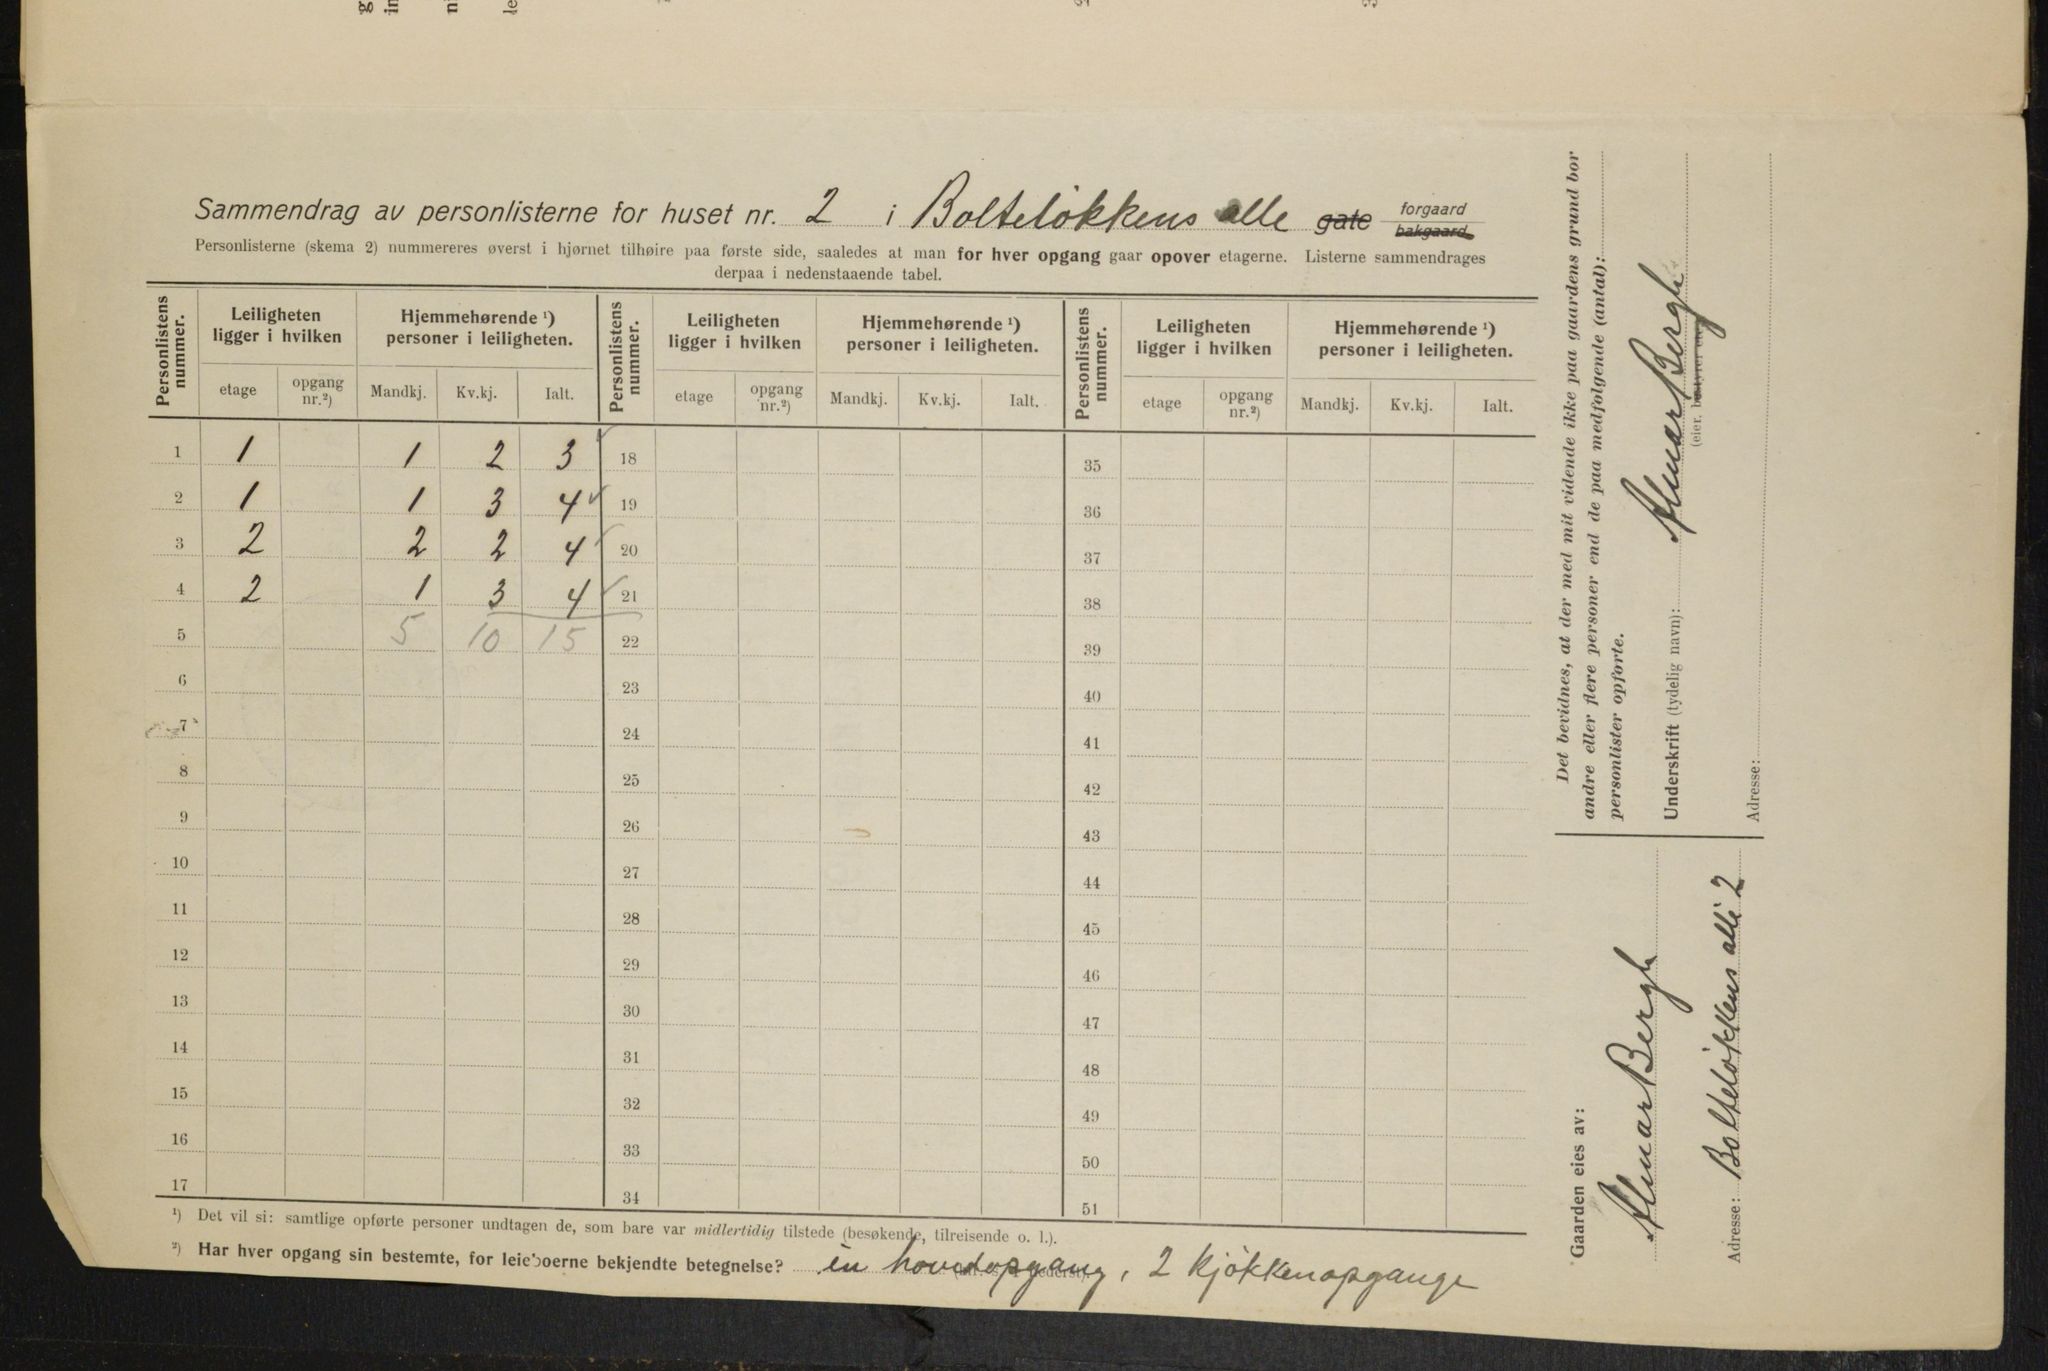 Sammendrag av personlisterne for huset nr. 2 i Bolteløkkens alle gate forgaard bakgaard
Personlisterne (skema 2) nummereres øverst i hjørnet tilhøire paa første side, saaledes at man for hver opgang gaar opover etagerne. Listerne sammendrages
derpaa i nedenstaaende tabel.
Personlistens nummer. Leiligheten ligger i hvilken Hjemmehørende ¹) personer i leiligheten. Personlistens nummer. Leiligheten ligger i hvilken Hjemmehørende ¹) personer i leiligheten. Personlistens nummer. Leiligheten ligger i hvilken Hjemmehørende ¹) personer i leiligheten.
etage opgang nr.²) Mandkj. Kv.kj. Ialt. etage opgang nr.²) Mandkj. Kv.kj. Ialt. etage opgang nr.²) Mandkj. Kv.kj. Ialt.
1 1 1 2 3 18 35
2 1 1 3 4 19 36
3 2 2 2 4 20 37
4 2 1 3 4 21 38
5 5 10 15 22 39
6 23 40
7 24 41
8 25 42
9 26 43
10 27 44
11 28 45
12 29 46
13 30 47
14 31 48
15 32 49
16 33 50
17 34 51
¹) Det vil si: samtlige opførte personer undtagen de, som bare var midlertidig tilstede (besøkende, tilreisende o. l.).
²) Har hver opgang sin bestemte, for leieboerne bekjendte betegnelse? én hovedopgang, 2 kjøkkenopgange
Det bevidnes, at der med mit vidende ikke paa gaardens grund bor
andre eller flere personer end de paa medfølgende (antal):
personlister opførte.
Underskrift (tydelig navn): Almar Bergh
(eier, bestyrer
Adresse:
Gaarden eies av:
Almar Bergh
Adresse: Bolteløkkens allé 2